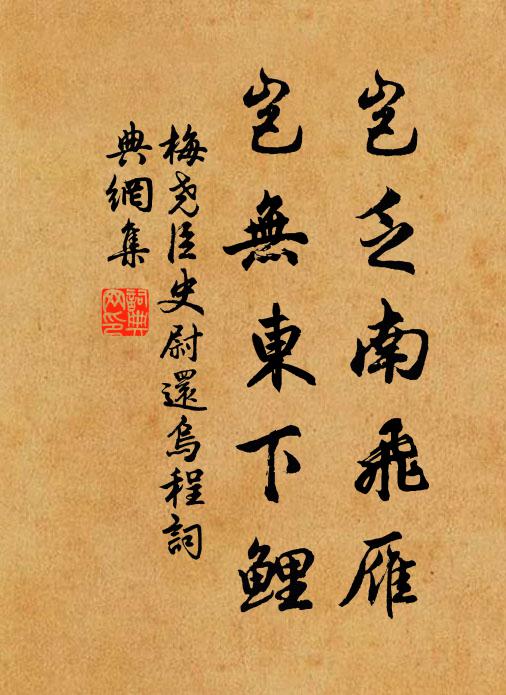 豈乏南飛雁
豈無東下鯉
梅堯臣史尉還烏程詞
典網集
詞典網印